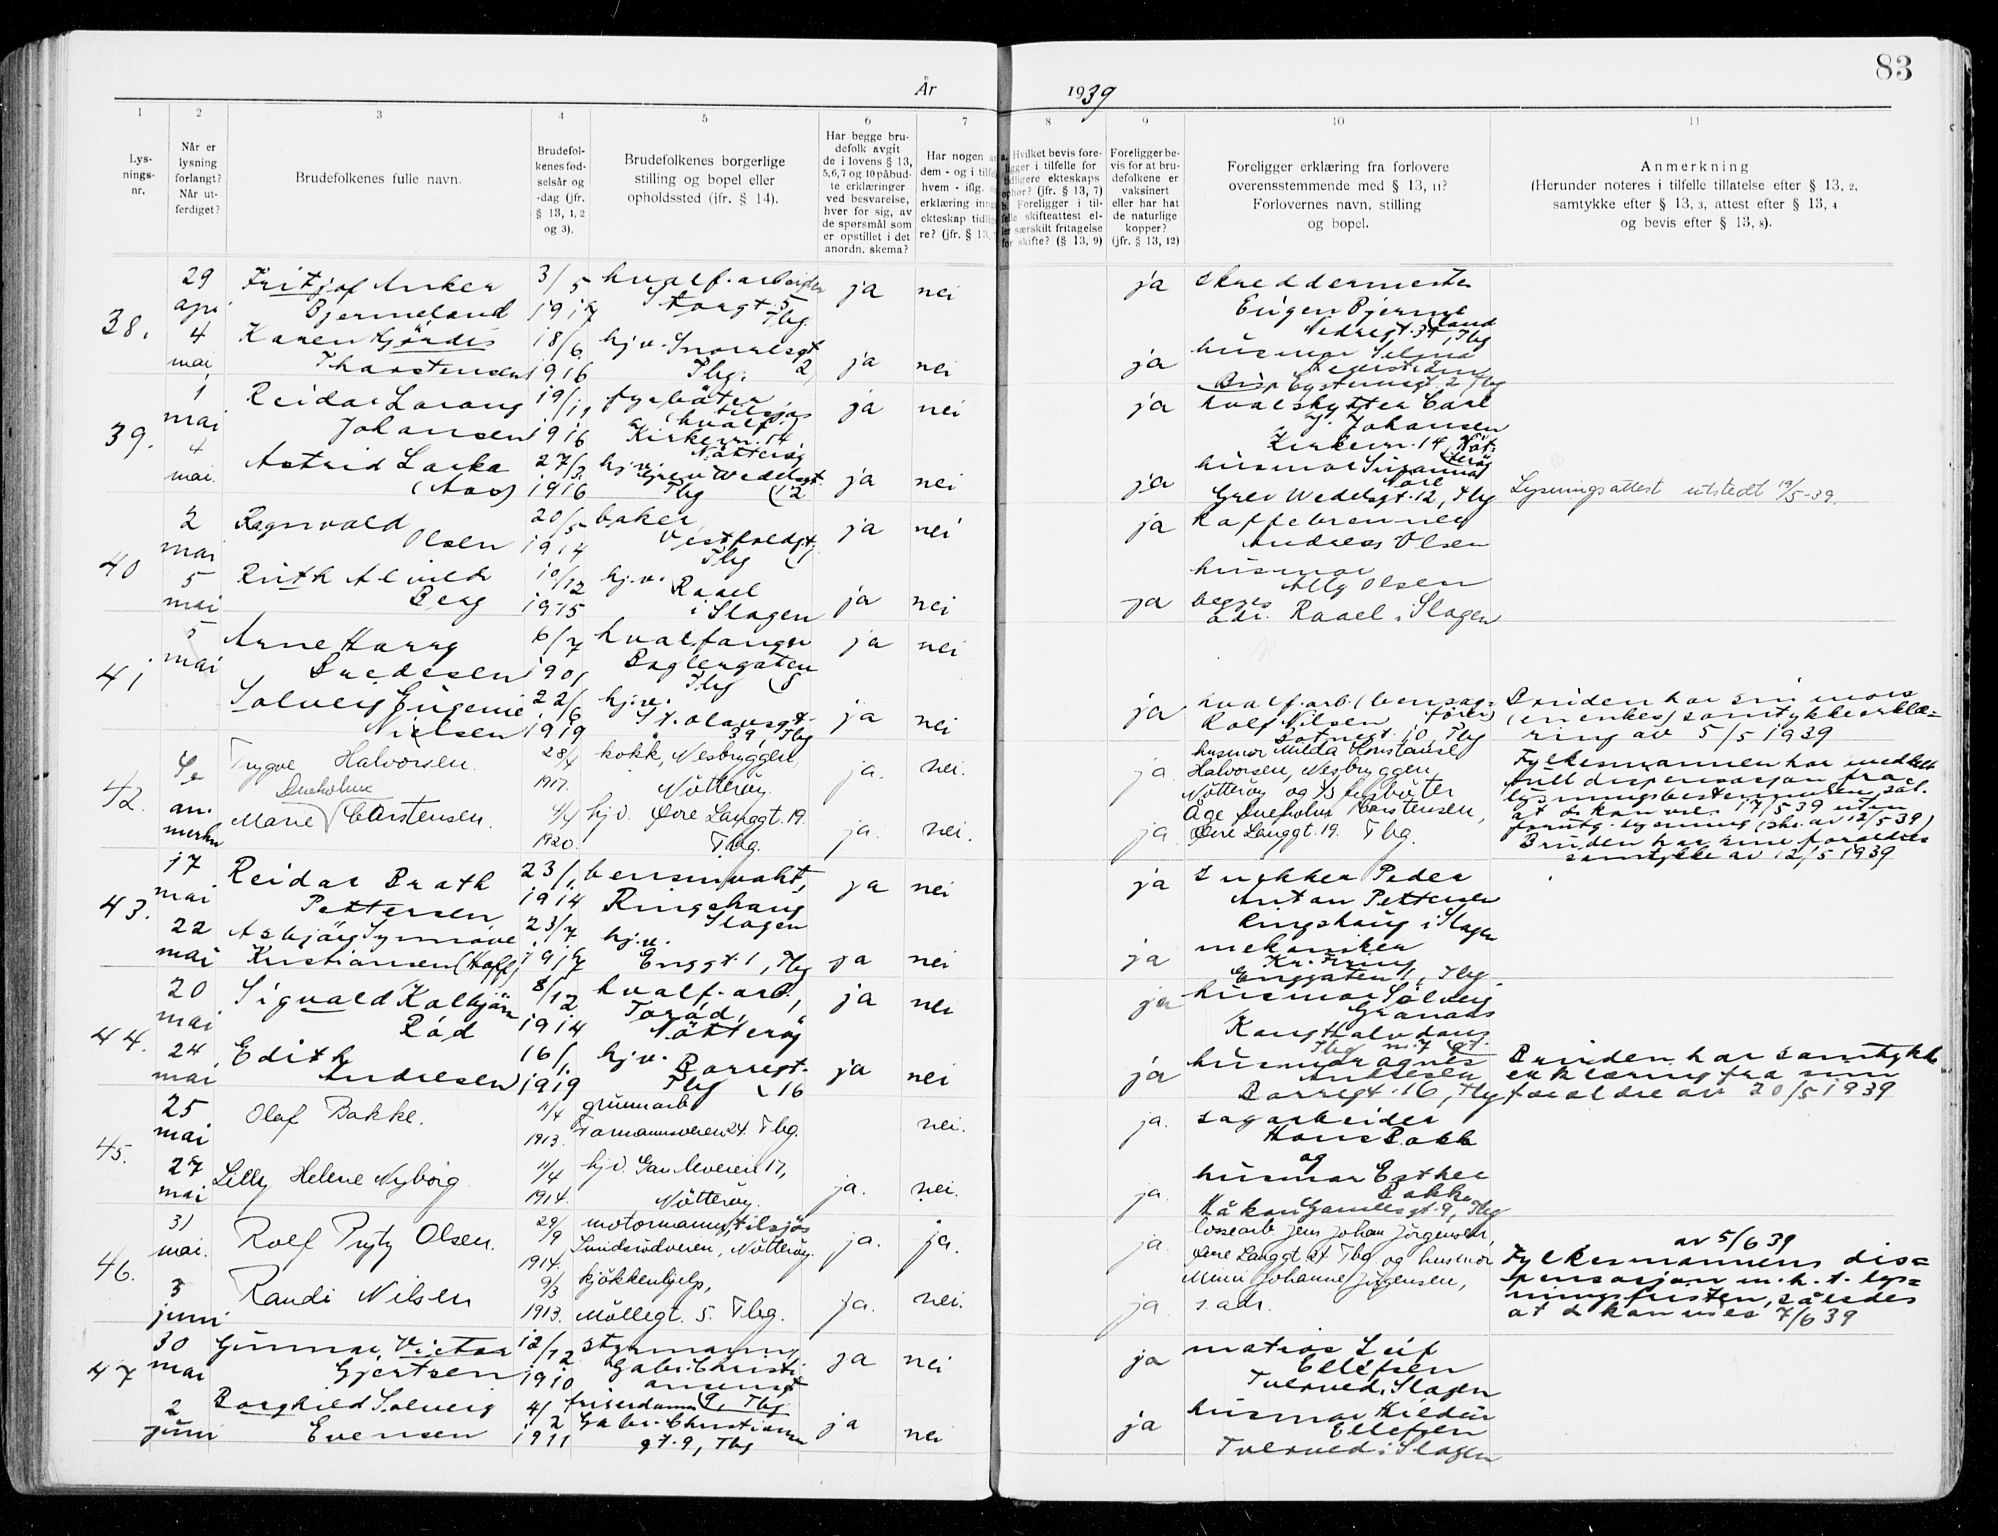 83
År 1939
1
2
3
4
5
6
7
8
9
10
11
Lys-
nings-
nr.
Når er
lysning
forlangt?
Når ut-
ferdiget?
Brudefolkenes fulle navn.
Brudefol-
kenes fød-
selsår og
-dag (jfr.
§ 13, 1, 2
og 3).
Brudefolkenes borgerlige
stilling og bopel eller
opholdssted (jfr. § 14).
Har begge bru-
defolk avgitt
de i lovens § 13,
5, 6, 7 og 10 påbud-
te erklæringer
ved besvarelse,
hver for sig, av
de spørsmål som
er opstillet i det
anordn. skema?
Har nogen av
dem - og i tilf
hvem - iflg.
erklæring inng
ekteskap tidlig
re? (jfr. § 13,
a. Hvilket bevis fore-
ligger i tilfelle for
tidligere ekteskaps
ophør? (jfr. § 13, 7)
b. Foreligger i til-
felle skifteattest el-
ler særskilt fritagelse
for skifte? (§ 13, 9)
Foreligger be-
vis for at bru-
defolkene er
vaksinert
eller har hat
de naturlige
kopper?
(jfr. § 13, 12)
Foreligger erklæring fra forlovere
overensstemmende med § 13, 11?
Forlovernes navn, stilling
og bopel.
Anmerkning
(Herunder noteres i tilfelle tillatelse efter § 13, 2,
samtykke efter § 13, 3, attest efter § 13, 4
og bevis efter § 13, 8).
38.
29
apr
Fritjof Anker
Bjerneland
3/5
1917
hvalf. arbeider
Storgt. 5
Tbg
ja
nei
ja
skreddermester
Eugen Bjerne
land
Nedregt. 34, Tbg
4
mai
Karen Hjördis
Thorstensen
18/6
1916
hj.v. Snorresgt
Tbg. 2,
ja
nei
ja
husmor Selma
Bisp Eysteinsgt 2 Tbg
39.
1
mai
Reidar Larang
Johansen
19/11
1916
fyrböter
tilsjøs
(hvalf.)
Kirkevn. 14
Nötteröy
ja
nei
ja
hvalskytter Carl
J. Johansen
Kirkevn. 14, Nöt-
teröy
4
mai
Astrid Larka
(Aas)
27/3
1916
hj.v.
Grev Wedelsgt
Tbg (12
ja
nei
ja
husmor Susanna
Grev Wedelsgt. 12, Tbg
Lysningsattest utstedt 19/5-39.
40
2
mai
Ragnvald
Olsen
20/5
1914
baker
Vestfoldgt.
Tbg (1
ja
nei
ja
kaffebrenner
Andreas Olsen
5
mai
Ruth Alvilde
Berg
10/12
1915
hj.v.
Raael
i Slagen
ja
nei
ja
husmor
Ally Olsen
begges
adr. Raael i Slagen
41
5
mai
Arne Harry
Bredesen
6/7
1901
hvalfanger
Baglergaten
Tbg (8
ja
nei
Solveig Eugenie
Nielsen
22/6
1919
hj.v.
St. olavsgt.
39, Tbg
ja
nei
ja
hvalf. arb. (bensag-
fører)
Rolf Nilsen
10, Tbg
Bruden har sin mors
(en enkes) samtykkeerklæ-
ring av 5/5 1939
42.
Se
an-
merkn
Trygve Halvorsen.
28/4
1917.
kokk, Nesbryggen,
Nötteröy.
ja.
nei.
ja
husmor Milda Konstanse
Halvorsen, Nesbryggen
Nötteröy og fyrböter
Fylkesmannen har meddelt
full dispensasjon fra
lysningsbestemmelsen, sål.
at d. kan vies 17/5 39 uten
forutg. lysning (skr. av 12/5 39)
Bruden har sine foreldres
samtykke av 12/5 1939
Dueholm
Marie Carstensen.
4/4
1920.
hj.v. Øvre Langgt. 19.
Tbg.
ja.
nei.
ja
Åge Dueholm Carstensen,
Øvre Langgt. 19. Tbg.
43.
17
mai
Reidar Brath
Pettersen
23/1
1914
bensinvakt,
Ringshaug
Slagen
ja
nei
ja
snekker Peder
Anton Pettersen
Ringshaug i Slagen
22
mai
Asbjørg Synnøve
Kristiansen (Hoff)
23/7
1917
hj.v.
Enggt. 1, Tbg
ja
nei
ja
mekaniker
Kr. Firing
Enggaten 1, Tbg.
44.
20
mai
Sigvald Kolbjörn
Röd
8/12
1914
hvalf. arb.,
Toröd,
Nötteröy
ja
nei
ja
husmor Solveig
Granaas
Kong Halvdans
gt.
Tbg. n. 7
24
mai
Edith
Andresen
16/1
1919
hj.v.
Borregt.
Tbg (16
ja
nei
ja
husmor Agnes
Andresen
Borregt. 16, Tbg
Bruden har samtykke
erklæring fra sine
foreldre av 20/5 1939
45.
25
mai
Olaf Bakke.
11/4
1913.
grunnarb
Farmannsveien 24. Tbg.
nei.
ja.
sagarbeider
Hans Bakke
og
27
mai
Lilly Helene Nyborg
11/4
1914.
hj.v. Gauleveien 17,
Nötteröy.
ja.
nei.
ja.
husmor Esther
Bakke
Håkon Gamlesgt. 9, Tbg
46.
31
mai.
Rolf Pryty Olsen.
29/9
1914.
motormann, tilsjøs
Smidsrødveien, Nötteröy.
ja.
ja.
ja.
lossearb Jens Johan Jörgensen,
Øvre Langgt 24 Tbg og husmor
av 5/6 39
Fylkesmannens dis=
pensasjon m.h.t. lys=
ningsfristen, således
at d kan vies 7/6 39
3
juni
Randi Nilsen
9/3
1913.
kjökkenhjelp,
Möllegt. 5. Tbg.
ja.
nei.
ja
Mimi Johanne Jörgensen,
s. adr.
47
30
mai
Gunnar Victor
Gjertsen
12/12
1910
styrmann,
Gabr. Christi
ansensgt
9, Tbg
ja
nei
ja
matros Leif
Ellefsen
Tverved i Slagen
2
juni
Borghild Solveig
Evensen
4/2
1911
friserdame
Gabr. Christianse
gt. 9, Tbg
ja
nei
ja
husmor Hildur
Ellefsen
Tverved i Slagen